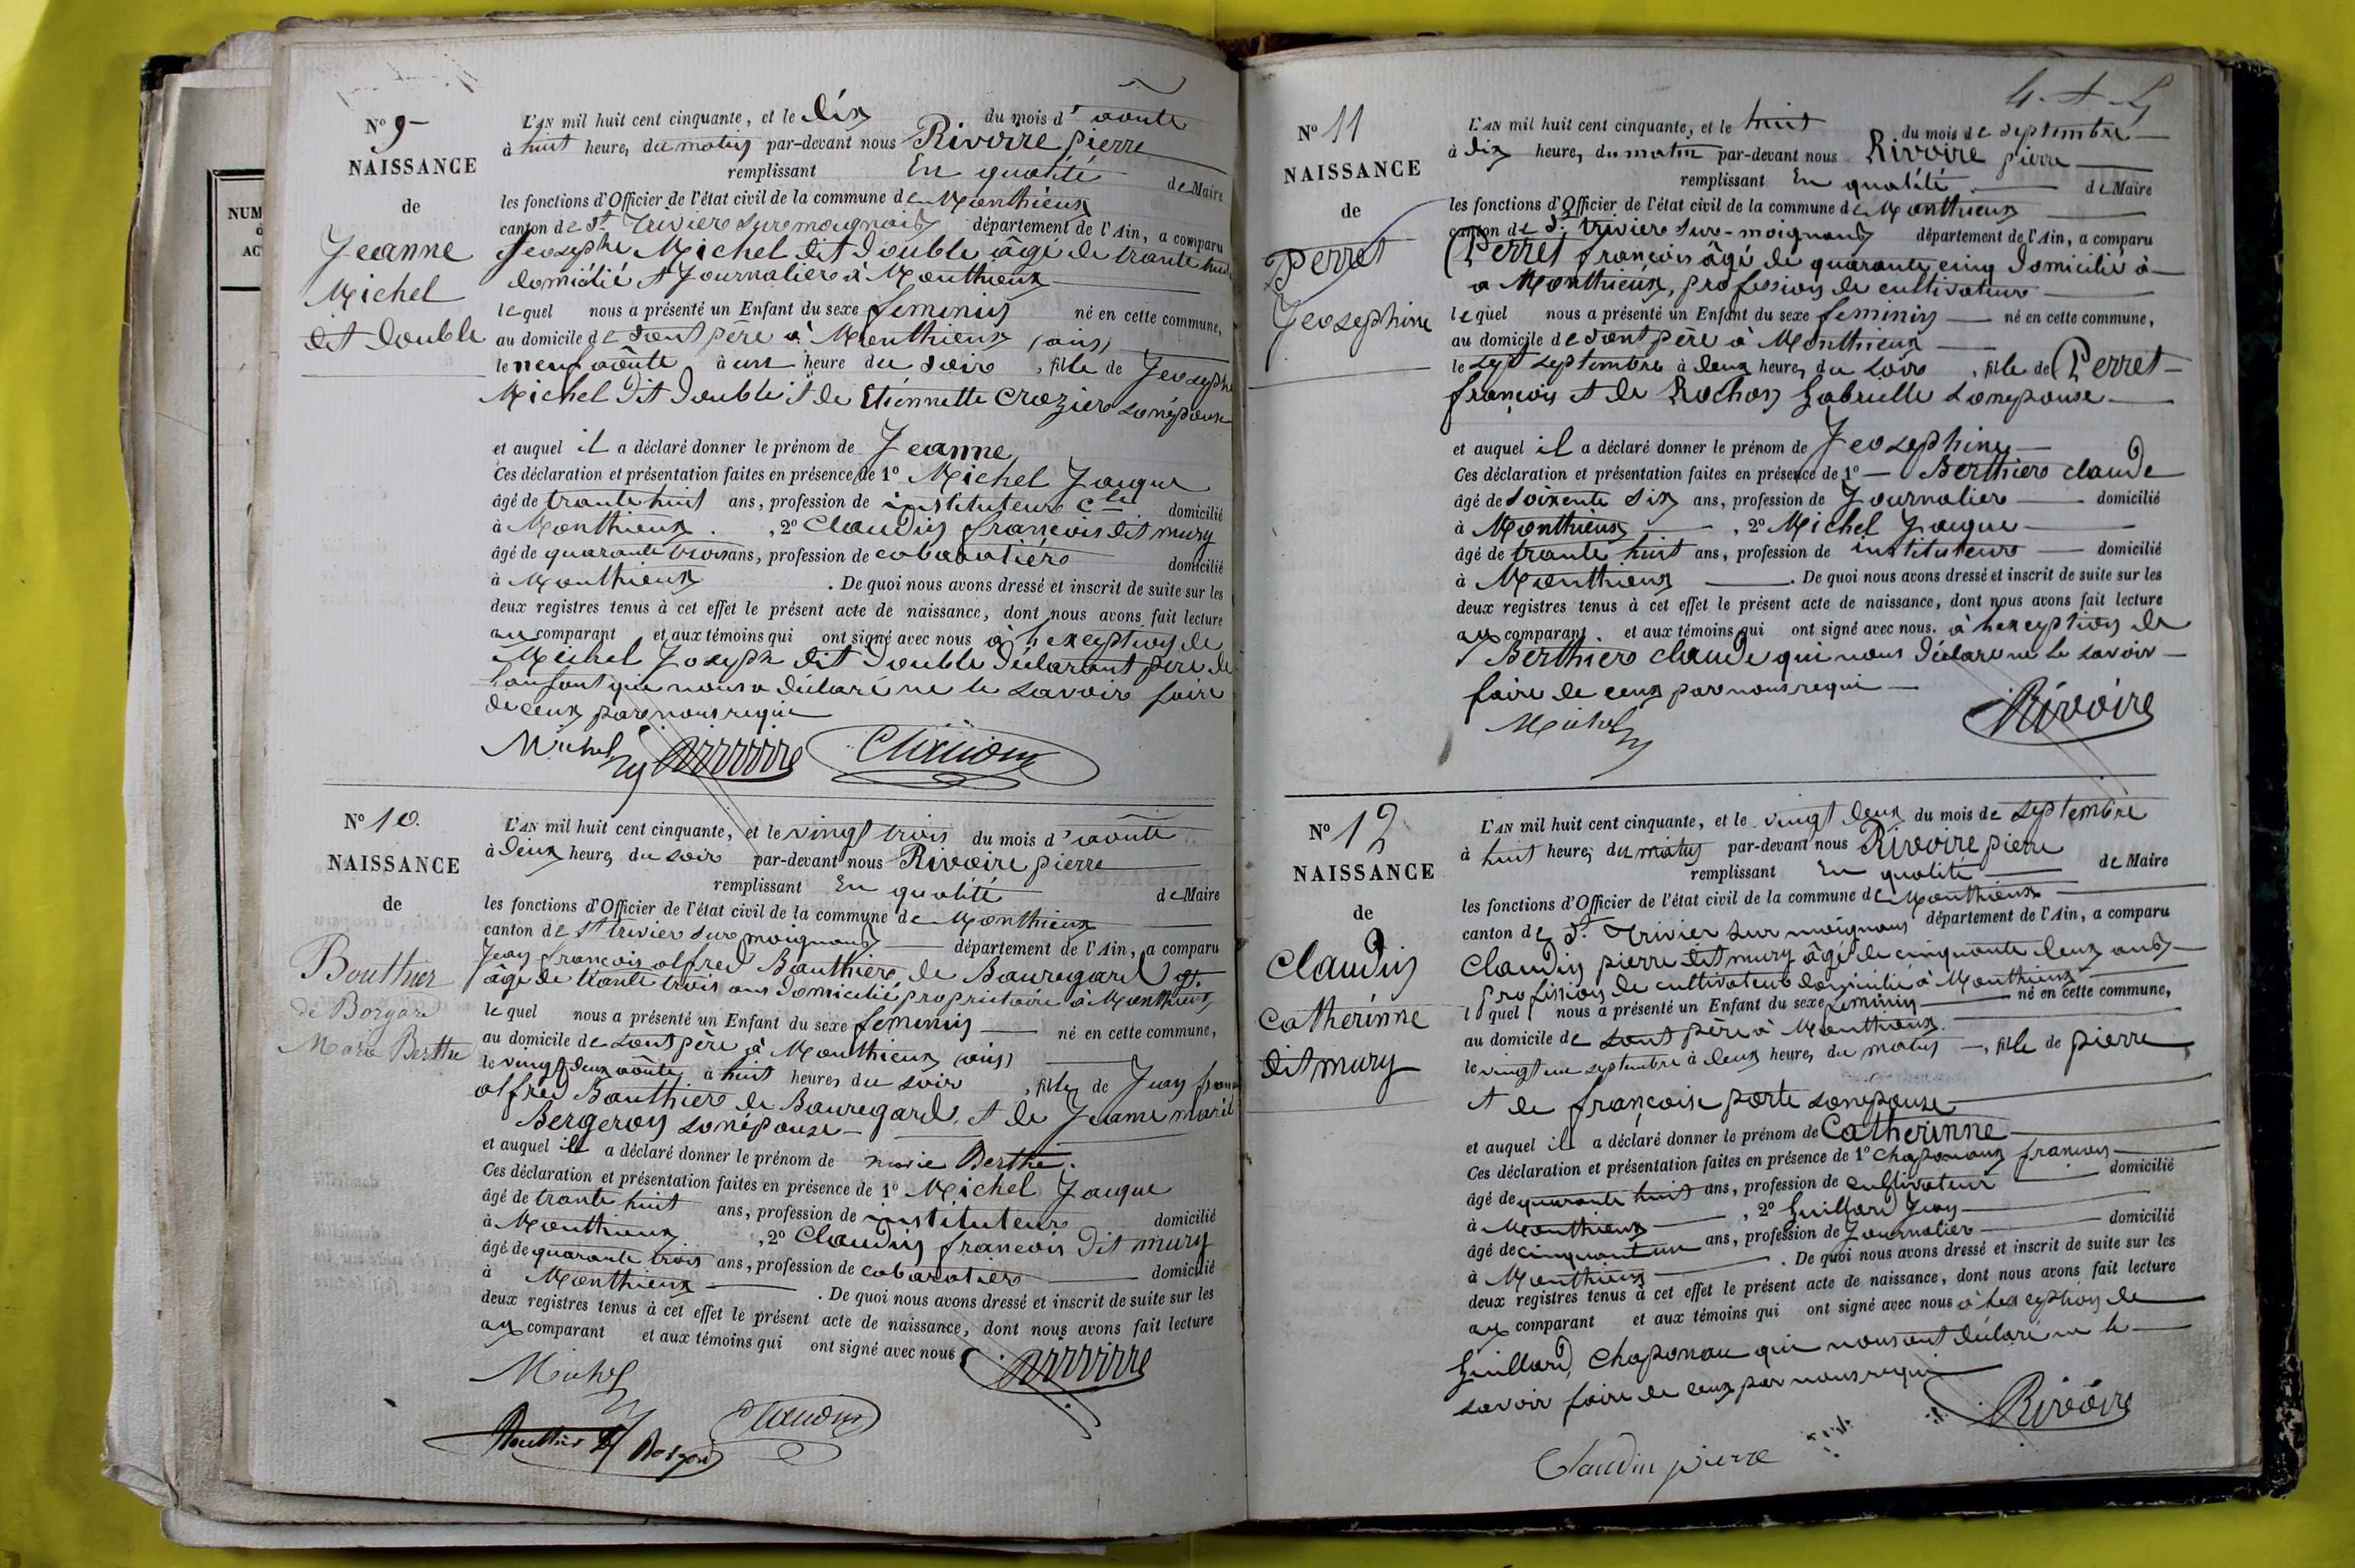 NUM
AC
N° 9
NAISSANCE
de
Jeanne
Michel
dit double
L'AN mil huit cent cinquante, et le dix du mois d' aoûte
à huit heures du matin par-devant nous Rivoire pierre
remplissant En qualité de Maire
les fonctions d'Officier de l'état civil de la commune de Monthieux
canton de St Trivier sur moignais département de l'Ain, a comparu
Jeosephe Michel dit double âgé de trante huit
domicilié et Journalier à Monthieux
lequel nous a présenté un Enfant du sexe feminin né en cette commune,
au domicile de sont père à Monthieux (ain)
le neuf aoûte à un heure du soir , fille de Jeoseph
Michel dit double et de Etiennette Crozier sonépouse
et auquel il a déclaré donner le prénom de Jeanne
Ces déclaration et présentation faites en présence de 1° Michel Jaque
âgé de trante huit ans, profession de instituteur Cel domicilié
à Monthieux . , 2° Claudin francois dit mury
âgé de quarante trois ans, profession de cabaratiere domicilié
à Monthieux . De quoi nous avons dressé et inscrit de suite sur les
deux registres tenus à cet effet le présent acte de naissance, dont nous avons fait lecture
au comparant et aux témoins qui ont signé avec nous à l'exception de
Michel Joseph dit double déclarant père de
l'anfant qui nous a déclaré ne le savoir faire
de ceux par nous requi
Michel Rivoire Claudin
N° 10.
NAISSANCE
de
Bouthier
de Borgard
Marie Berthe
L'AN mil huit cent cinquante, et le vingt trois du mois d' aoûte
à deux heures du soir par-devant nous Rivoire pierre
remplissant En qualité de Maire
les fonctions d'Officier de l'état civil de la commune de Monthieux
canton de St trivier sur moignand département de l'Ain, a comparu
Jean francois alfred Bauthière de Bauregard
âgé de trante trois ans domicilié propriétaire à Monthieux
lequel nous a présenté un Enfant du sexe feminin né en cette commune,
au domicile de sont père à Monthieux (ain)
le vingt deux aoûte à huit heures du soir , fille de Jean
alfred Bauthiere de Bauregard, et de Jeanne marie
Bergeron sonépouse
et auquel il a déclaré donner le prénom de marie Berthe.
Ces déclaration et présentation faites en présence de 1° Michel Jaque
âgé de trante huit ans, profession de instituteur domicilié
à Monthieux , 2° Claudin francois dit mury
âgé de quarante trois ans, profession de cabaratiere domicilié
à Monthieux . De quoi nous avons dressé et inscrit de suite sur les
deux registres tenus à cet effet le présent acte de naissance, dont nous avons fait lecture
aux comparant et aux témoins qui ont signé avec nous
Michel Rivoire
Bouthier de Borgard Claudin
N° 11
NAISSANCE
de
Perret
Jeosephine
L'AN mil huit cent cinquante, et le huit du mois de septembre
à dix heures du matin par-devant nous Rivoire pierre
remplissant En qualité de Maire
les fonctions d'Officier de l'état civil de la commune de Monthieux
canton de St trivier sur-moignand département de l'Ain, a comparu
Perret françois âgé de quarante cinq domicilié à
a Monthieux, profession de cultivateur
lequel nous a présenté un Enfant du sexe feminin né en cette commune,
au domicile de sont père à Monthieux
le sept septembre à deux heures du soir , fille de Perret
françois et de Rochon Gabrielle sonepouse
et auquel il a déclaré donner le prénom de Jeosephine
Ces déclaration et présentation faites en présence de 1° Berthier claude
âgé de soixente six ans, profession de Journalier domicilié
à Monthieux , 2° Michel Jaque
âgé de trante huit ans, profession de instituteur domicilié
à Monthieux . De quoi nous avons dressé et inscrit de suite sur les
deux registres tenus à cet effet le présent acte de naissance, dont nous avons fait lecture
aux comparant . et aux témoins qui ont signé avec nous. à l'exception de
Berthier claude qui nous déclare ne le savoir
faire de ceux par nous requi
Michel Rivoire
N° 12
NAISSANCE
de
Claudin
Catherinne
dit mury
L'AN mil huit cent cinquante, et le vingt deux du mois de septembre
à huit heures du matin par-devant nous Rivoire pierre
remplissant En qualité de Maire
les fonctions d'Officier de l'état civil de la commune de Monthieux
canton de St Trivier sur moignans département de l'Ain, a comparu
Claudin pierre dit mury âgé de cinquante deux ans
profission de cultivateur domicilié à Monthieux
lequel nous a présenté un Enfant du sexe feminin né en cette commune,
au domicile de sont père à Monthieux.
le vingt un septembre à deux heures du matin , fille de pierre
et de françoise porte sonepouse
et auquel il a déclaré donner le prénom de Catherinne
Ces déclaration et présentation faites en présence de 1° Chaponaux francois
âgé de quarante huit ans, profession de cultivateur domicilié
à Monthieux , 2° Guillard Jean
âgé de cinquant un ans, profession de Journalier domicilié
à Monthieux . De quoi nous avons dressé et inscrit de suite sur les
deux registres tenus à cet effet le présent acte de naissance, dont nous avons fait lecture
aux comparant et aux témoins qui ont signé avec nous à l'exception de
Guillard, Chaponau qui nous ont déclaré ne le
savoir faire de ceux par nous requi
Rivoire
Claudin pierre